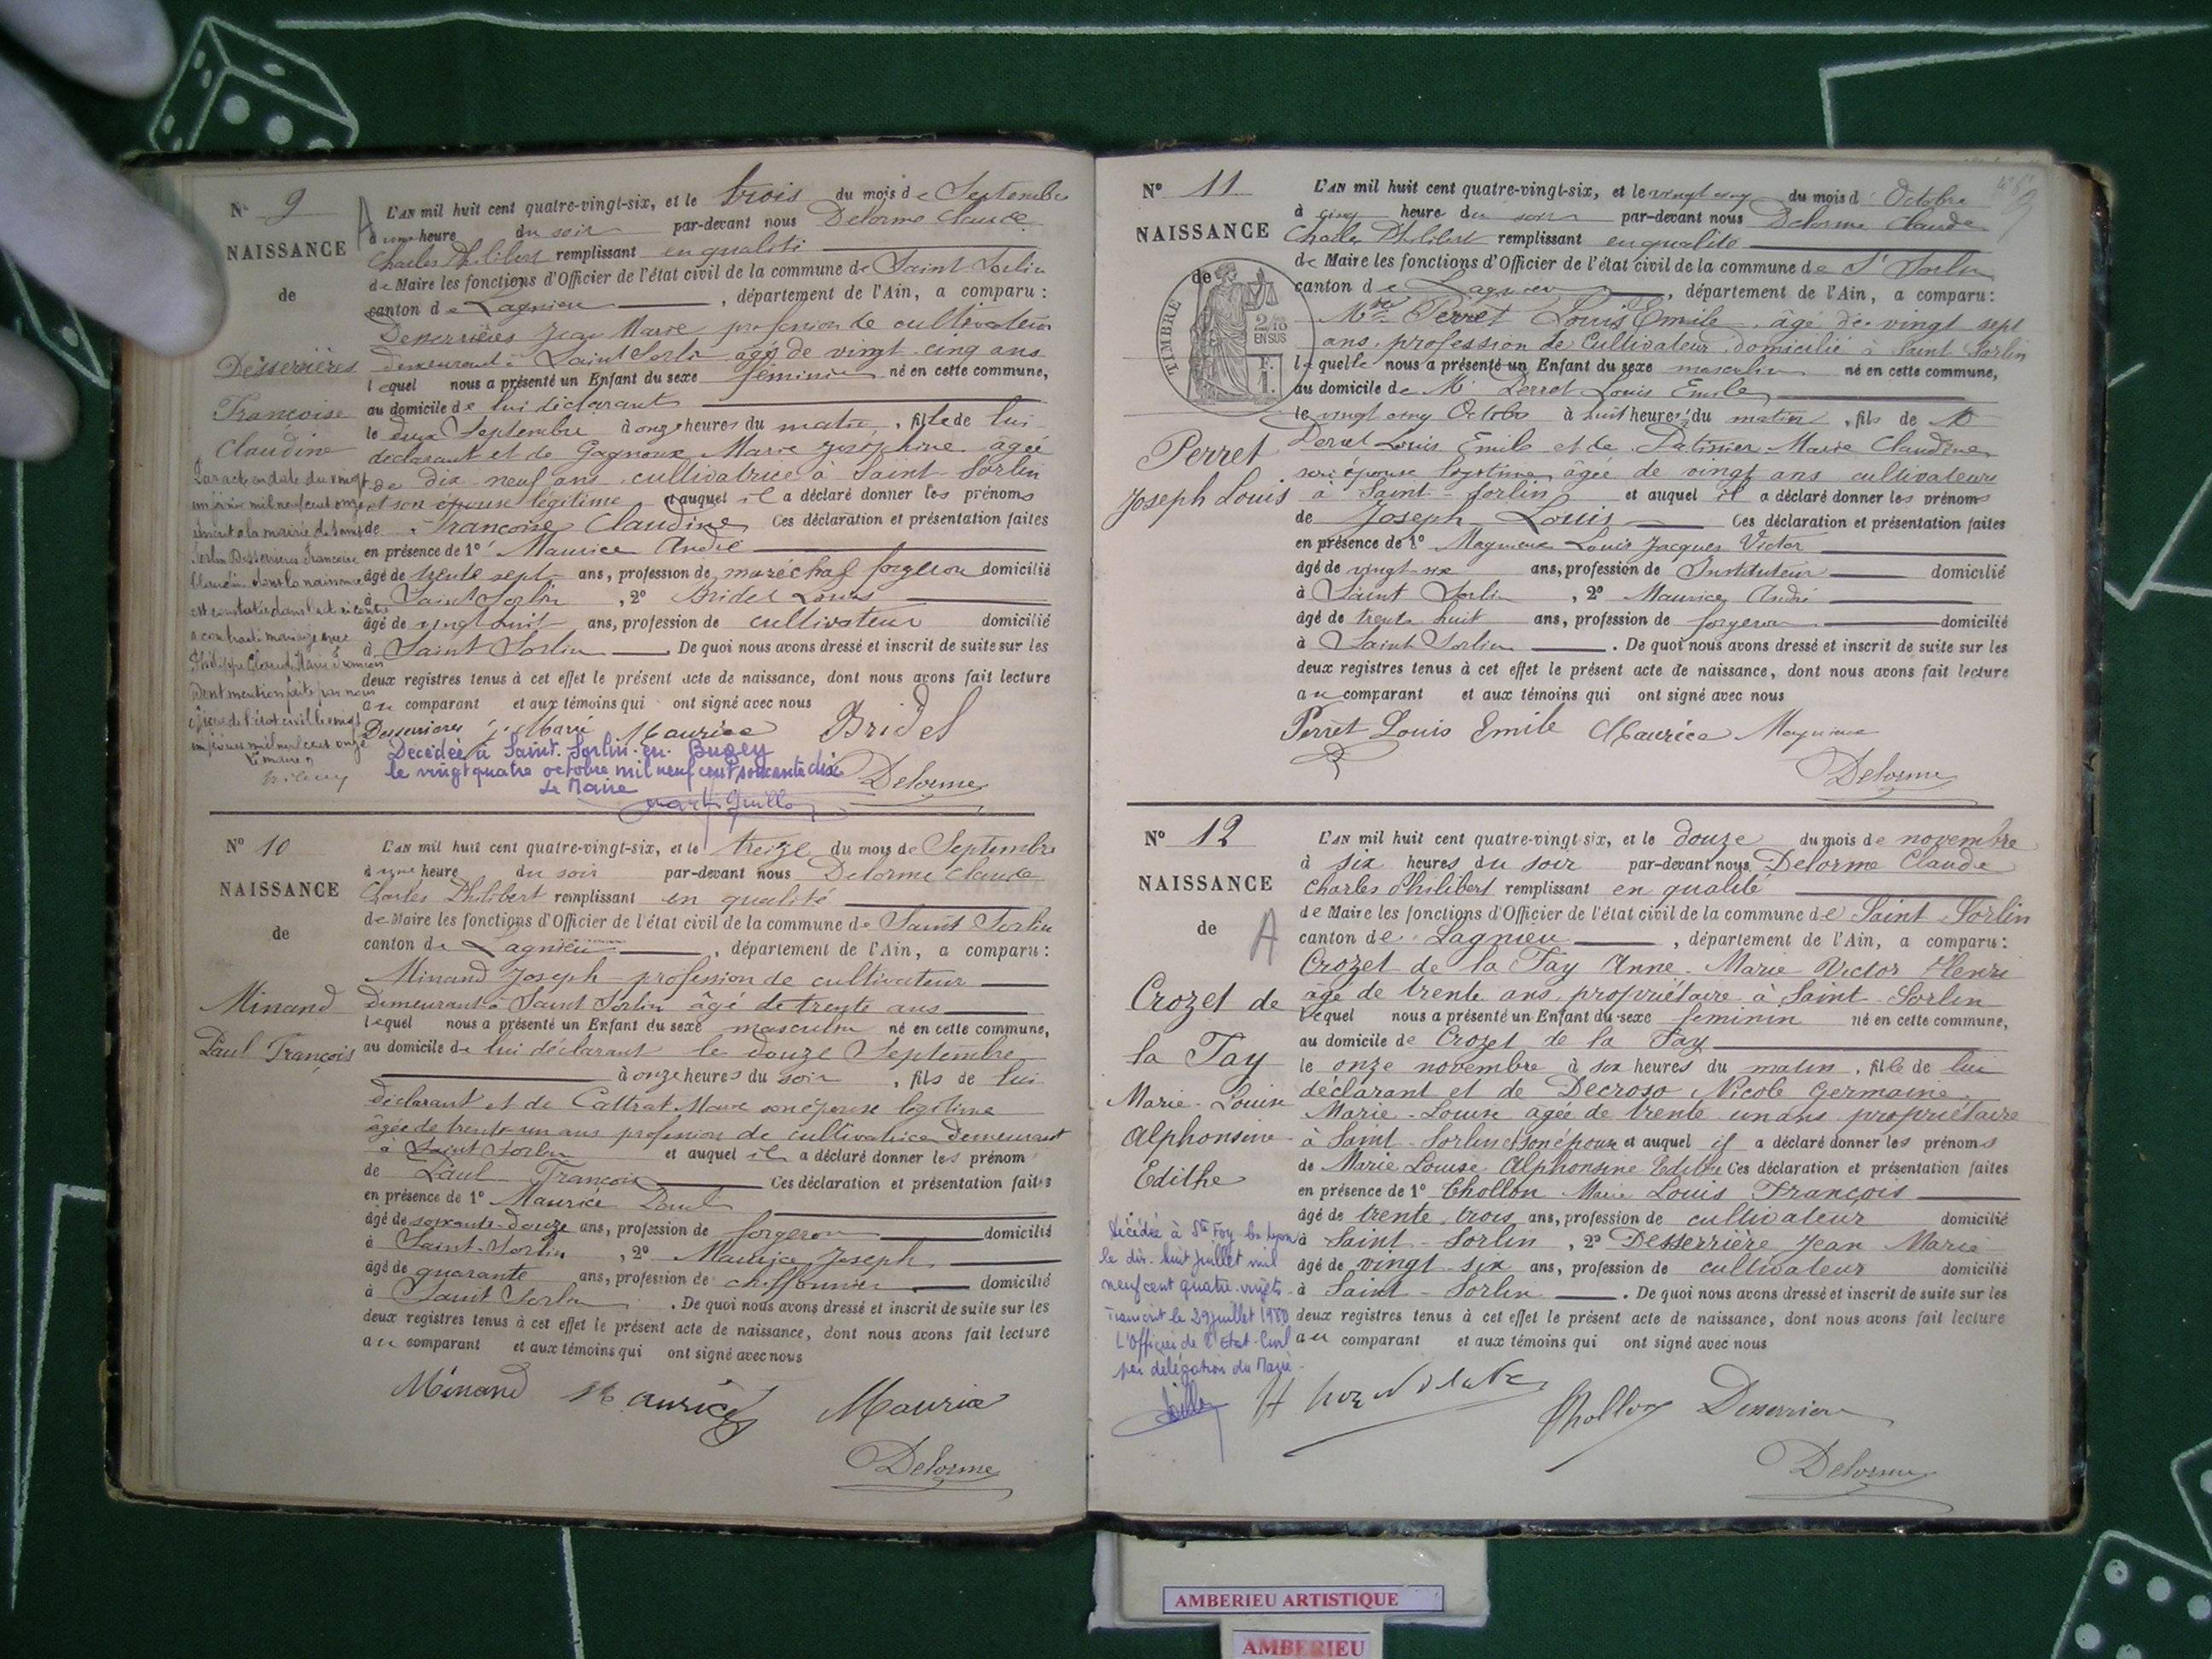 N° 9
NAISSANCE
de
Desserrières
Françoise
Claudine
Par acte en date du vingt
un février mil neuf cent onze
à la mairie de Saint
Sorlin Desserrières Françoise
Claudine dont la naissance
est constatée dans l'acte ci contre
a contracté mariage avec
Philippe Claude Marie François
Dont mention faite par nous
officier de l'état civil le vingt
un février mil neuf cent onze
Le maire
L'AN mil huit cent quatre-vingt-six, et le trois du mois de Septembre
à une heure du soir par-devant nous Delorme Claude
Charles Philibert remplissant en qualité
de Maire les fonctions d'Officier de l'état civil de la commune de Saint Sorlin
canton de Lagnieu, département de l'Ain, a comparu :
Desserrières Jean Marie profession de cultivateur
demeurant à Saint Sorlin âgé de vingt-cinq ans
lequel nous a présenté un Enfant du sexe féminin né en cette commune,
au domicile de lui déclarant
le deux Septembre à onze heures du matin, fille de lui
déclarant et de Gagnoux Marie Joséphine âgée
de dix-neuf ans cultivatrice à Saint-Sorlin
et son épouse légitime et auquel il a déclaré donner les prénoms
de Françoise Claudine Ces déclaration et présentation faites
en présence de 1° Maurice André
âgé de trente sept ans, profession de maréchal forgeron domicilié
à Saint Sorlin, 2° Bridel Louis
âgé de vingt huit ans, profession de cultivateur domicilié
à Saint Sorlin. De quoi nous avons dressé et inscrit de suite sur les
deux registres tenus à cet effet le présent acte de naissance, dont nous avons fait lecture
au comparant et aux témoins qui ont signé avec nous
Desserrieres J. Marie Maurice Bridel
Décédée à Saint-Sorlin-en-Bugey
le vingt quatre octobre mil neuf cent soixante dix
Le Maire
Delorme
N° 10
NAISSANCE
de
Minand
Paul François
L'AN mil huit cent quatre-vingt-six, et le treize du mois de Septembre
à une heure du soir par-devant nous Delorme Claude
Charles Philibert remplissant en qualité
de Maire les fonctions d'Officier de l'état civil de la commune de Saint Sorlin
canton de Lagnieu, département de l'Ain, a comparu :
Minand Joseph profession de cultivateur
demeurant à Saint Sorlin âgé de trente ans
lequel nous a présenté un Enfant du sexe masculin né en cette commune,
au domicile de lui déclarant le douze Septembre
à onze heures du soir, fils de lui
déclarant et de Cattrat Marie son épouse légitime
âgée de trente-un ans profession de cultivatrice demeurant
à Saint Sorlin et auquel il a déclaré donner les prénom
de Paul François Ces déclaration et présentation faites
en présence de 1° Maurice Paul
âgé de soixante-douze ans, profession de forgeron domicilié
à Saint-Sorlin, 2° Maurice Joseph
âgé de quarante ans, profession de chiffonnier domicilié
à Saint Sorlin. De quoi nous avons dressé et inscrit de suite sur les
deux registres tenus à cet effet le présent acte de naissance, dont nous avons fait lecture
au comparant et aux témoins qui ont signé avec nous
Minand Maurice Maurice
Delorme
N° 11
NAISSANCE
de
TIMBRE
2/10
EN SUS
F.
1.
Perret
Joseph Louis
L'AN mil huit cent quatre-vingt-six, et le vingt cinq du mois d'Octobre
à cinq heure du soir par-devant nous Delorme Claude
Charles Philibert remplissant en qualité
de Maire les fonctions d'Officier de l'état civil de la commune de St Sorlin
canton de Lagnieu, département de l'Ain, a comparu :
Perret Louis Emile, âgé de vingt sept
ans, profession de Cultivateur, domicilié à Saint Sorlin
lequel nous a présenté un Enfant du sexe masculin né en cette commune,
au domicile de Mr Perret Louis Emile
le vingt cinq Octobre à huit heures du matin, fils de
Perret Louis Emile et de Patissier Marie Claudine
son épouse légitime âgée de vingt ans cultivateurs
à Saint-Sorlin et auquel il a déclaré donner les prénoms
de Joseph Louis Ces déclaration et présentation faites
en présence de 1° Magnieux Louis Jacques Victor
âgé de vingt-six ans, profession de Instituteur domicilié
à Saint Sorlin, 2° Maurice André
âgé de trente huit ans, profession de forgeron domicilié
à Saint Sorlin. De quoi nous avons dressé et inscrit de suite sur les
deux registres tenus à cet effet le présent acte de naissance, dont nous avons fait lecture
au comparant et aux témoins qui ont signé avec nous
Perret Louis Emile Maurice
Delorme
N° 12
NAISSANCE
de
A
Crozet de
la Fay
Marie-Louise
Alphonsine
Edithe
Décédée à Ste Foy les Lyon
le dix-huit juillet mil
neuf cent quatre-vingts
Transcrit le 29 juillet 1980
L'Officier de l'Etat-Civil
par délégation du Maire
L'AN mil huit cent quatre-vingt-six, et le douze du mois de novembre
à six heures du soir par-devant nous Delorme Claude
Charles Philibert remplissant en qualité
de Maire les fonctions d'Officier de l'état civil de la commune de Saint Sorlin
canton de Lagnieu, département de l'Ain, a comparu :
Crozet de la Fay Anne-Marie Victor Henri
âgé de trente ans, propriétaire à Saint-Sorlin
lequel nous a présenté un Enfant du sexe féminin né en cette commune,
au domicile de Crozet de la Fay
le onze novembre à six heures du matin, fille de lui
déclarant et de Decroso Nicole Germaine
Marie-Louise âgée de trente un ans propriétaire
à Saint-Sorlin et son épouse et auquel il a déclaré donner les prénoms
de Marie Louise Alphonsine Edithe Ces déclaration et présentation faites
en présence de 1° Chollon Marie Louis François
âgé de trente trois ans, profession de cultivateur domicilié
à Saint-Sorlin, 2° Desserrière Jean Marie
âgé de vingt-six ans, profession de cultivateur domicilié
à Saint-Sorlin. De quoi nous avons dressé et inscrit de suite sur les
deux registres tenus à cet effet le présent acte de naissance, dont nous avons fait lecture
au comparant et aux témoins qui ont signé avec nous
Chollon Desserriere
Delorme
AMBERIEU ARTISTIQUE
AMBERIEU